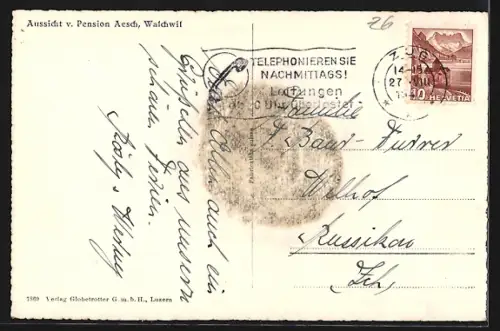 Aussicht v. Pension Aesch, Walchwil
26
TELEPHONIEREN SIE
NACHMITTAGS!
Leitungen
ZUG
14-15
27. VIII.
10 HELVETIA
auch ein
Grüsschen aus unsern
schönen Ferien.
Rösly & Werner
Familie
J. Baur-Furrer
Wilhof
Russikon
Zch
7869 Verlag Globetrotter G. m. b. H., Luzern